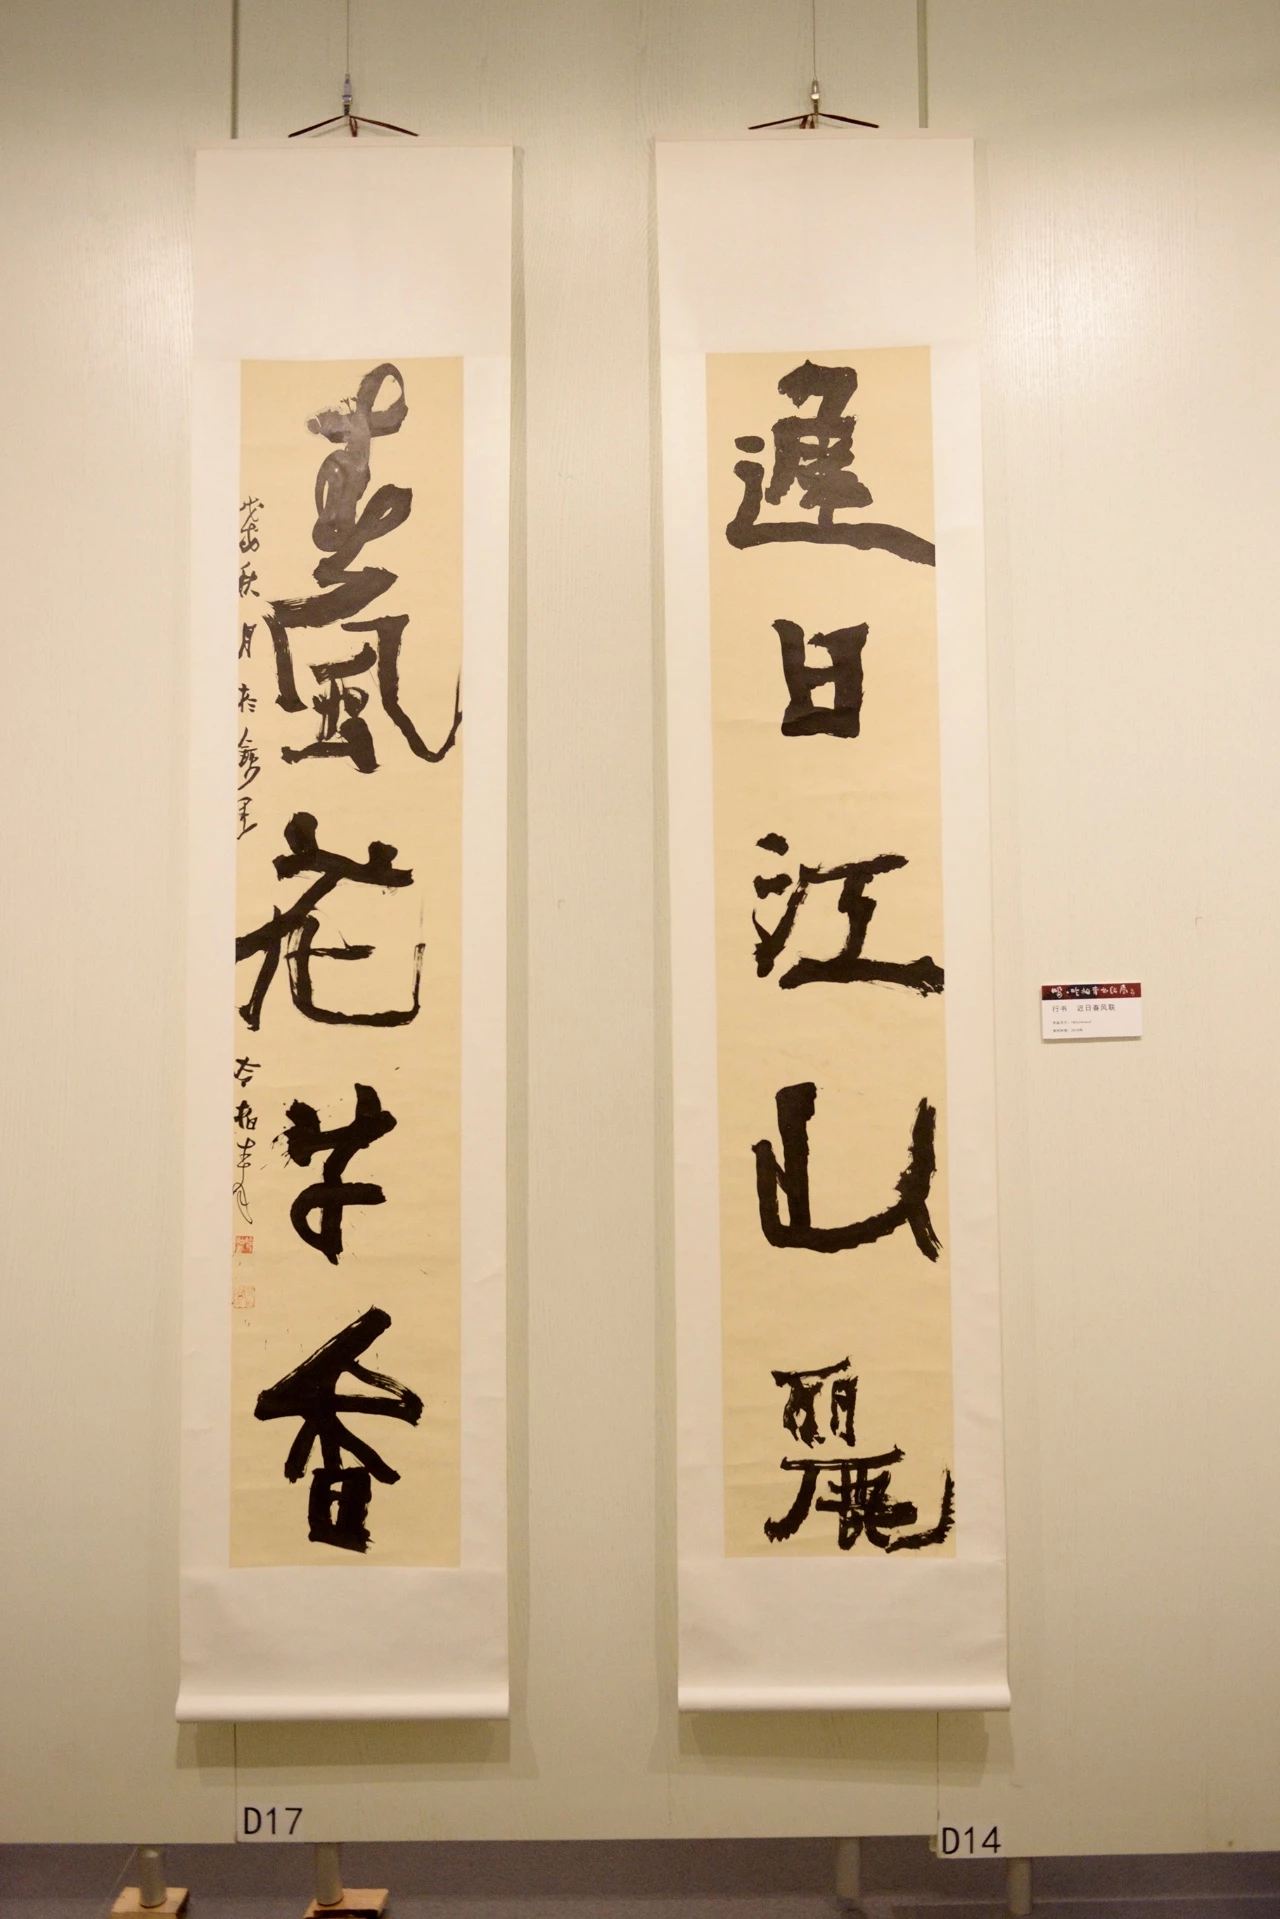 遲日江山麗
春風花草香
戊戌秋月於
冷柏青
行书 近日春风联
D17
D14